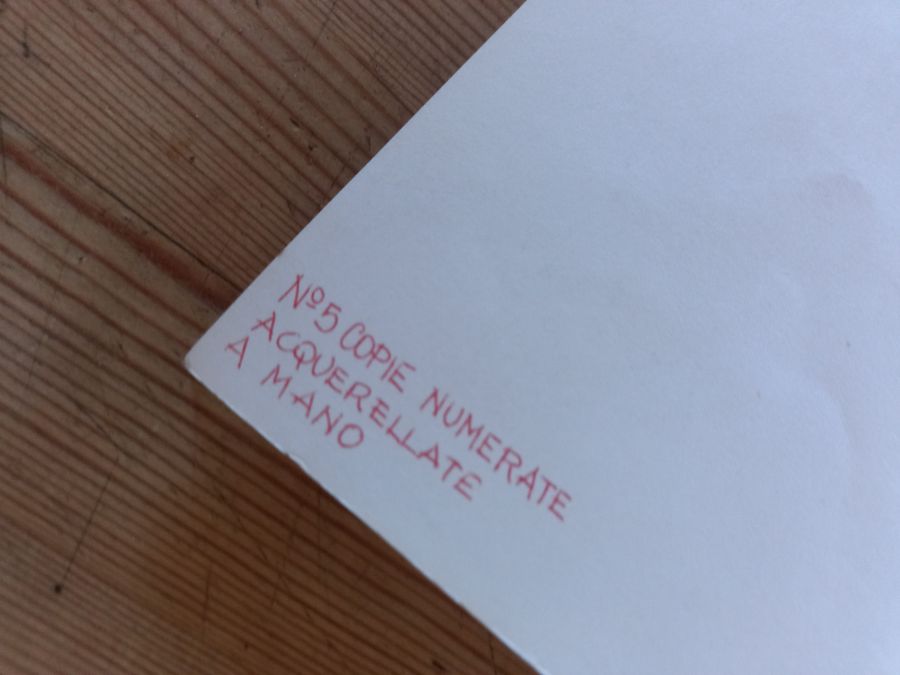 Nº5 COPIE NUMERATE
ACQUERELLATE
A MANO